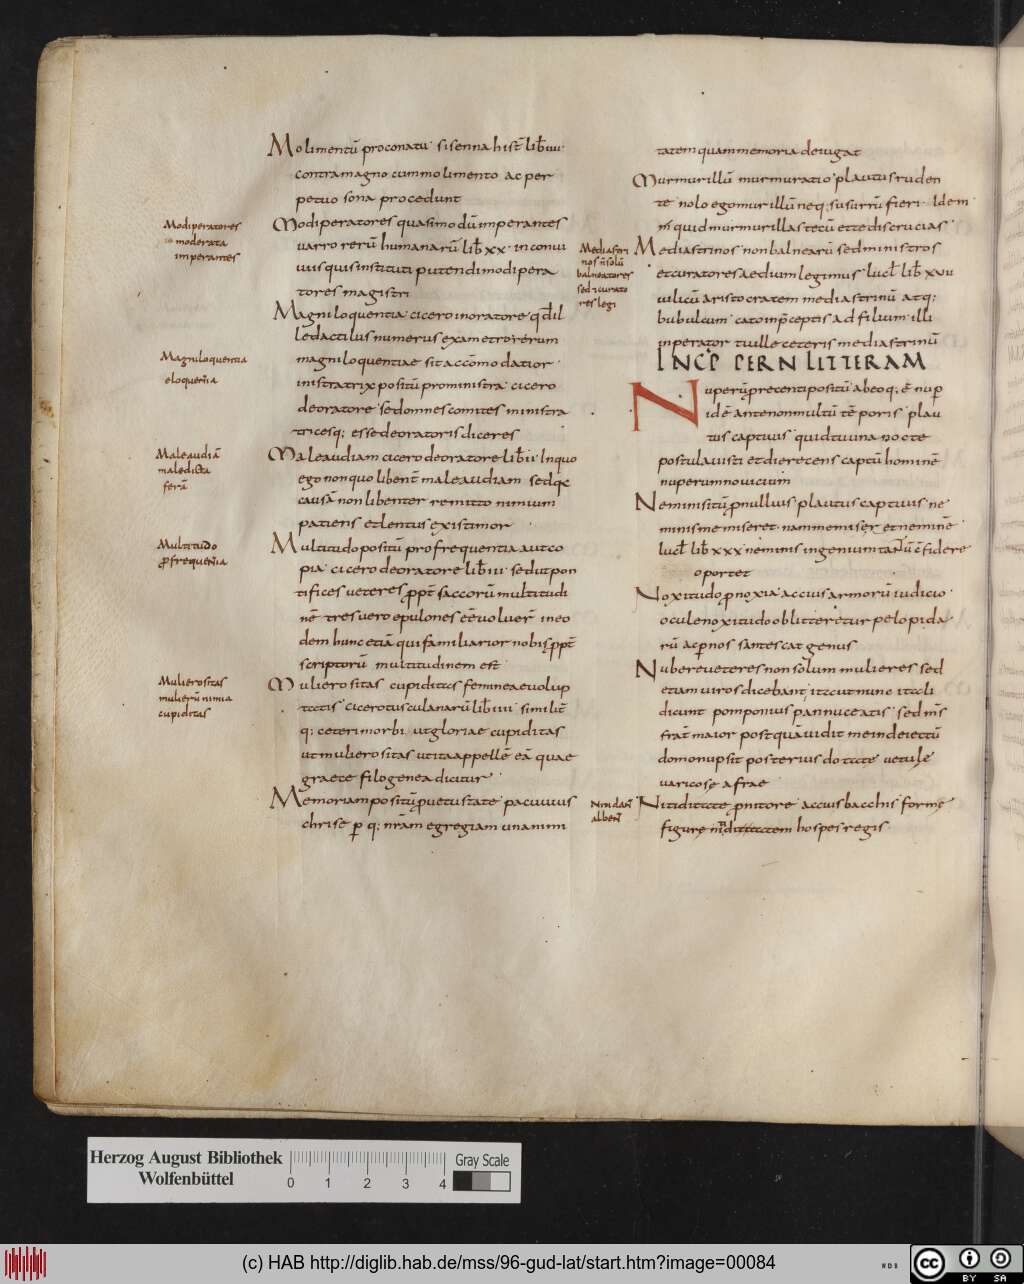 Molimentū proconatu sisenna hist̄ lib̄ iiii
contramagno cummolimento ac per
petuo sona procedunt
Modiperatores
moderata
imperantes
Modiperatores quasimodū imperantes
varro rerū humanarū lib̄ xx in conui
uiis quis instituti putendi modipera
tores magistri
Magniloquentia
eloquent̄ia
Magniloquentia cicero in oratore qd̄ il
le dactilus numerus exametrorerum
magniloquentiae sit accōmodatior
inistratrix positū proministra cicero
deoratore sedomnes comites ministra
tricesq; esse deoratoris diceres
Maleaudiā
maledicta
ferā
Maleaudiam cicero deoratore lib̄ ii Inquo
ego non quo libent̄ maleaudiam sed
causā non libenter remitto nimium
patiens et lentus existimor
Multitudo
p frequent̄ia
Multitudo positū pro frequentia aut co
pia cicero deoratore lib̄ iii sedut pon
tifices veteres ppt̄ saccorū multitudi
nē tres uero epulones eē uoluer̄ in eo
dem hunc etiā qui familiarior nobis ppt̄
scriptorū multitudinem est
Mulierositas
mulierū nimia
cupiditas
Mulierositas cupiditas femineae uolup
tatis cicero tusculanarū lib̄ iiii similit̄
q; ceteri morbi ut gloriae cupiditas
ut mulierositas ut ita appellē eā quae
graece filogenea dicitur
Memoriam positū p uetustate pacuuius
chrise p q; nr̄am egregiam unanimi
tatem quam memoria deiugat
Murmurillū murmuratio plautus ruden
te nolo ego murillū neq; susurrū fieri Idem
nis̄ quid murmurillas tecū et te discrucias
Mediastri
nos n̄ solū
balneatores
sed & curato
res legi
Mediastrinos non balnearū sed ministros
et curatores aedium legimus lucl̄ lib̄ xvii
uilicū aristocratem mediastrinū atq;
bubulcum cato inp̄ceptis ad filium illi
inperator tu ille ceteris mediastrinū
INCP̄ PER N LITTERAM
Nuperū precenti positū abeoq; ē nup
idē ante non multū tēporis plau
tus captiuis quid tu una nocte
postulauisti et die recens captū hominē
nuperum nouicium
Neminisitū p nullius plautus captiuis ne
minis me miseret nam nemi ser et neminē
lucl̄ lib̄ xxx neminis ingenium tantū c̄fidere
oportet
Noxitudo p noxia accius armorū iudicio
oculenoxitudo oblitteretur pelopida
rū ac p nos santescat genus
Nubere ueteres non solum mulieres sed
etiam uiros dicebant ita ut nunc itali
dicunt pomponius pannuceatis sed m̄s
frat̄ maior postquā uidit me indeiectū
domo nupsit posterius dotate uetule
uaricose afrae
Nitidant̄
albent̄
Nitiditate p nitore accius bacchis forme
figure nitiditatem hospes regis
Herzog August Bibliothek
Wolfenbüttel
0 1 2 3 4
Gray Scale
(c) HAB http://diglib.hab.de/mss/96-gud-lat/start.htm?image=00084
WDB
cc BY SA